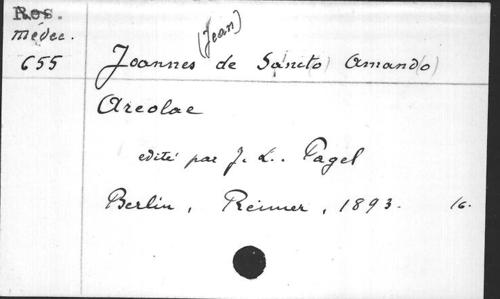 Ros.
médec.
655
Joannes (Jean) de Sancto Amando)
Areolae
edité par J. L. Pagel
Berlin, Reimer, 1893. 16.